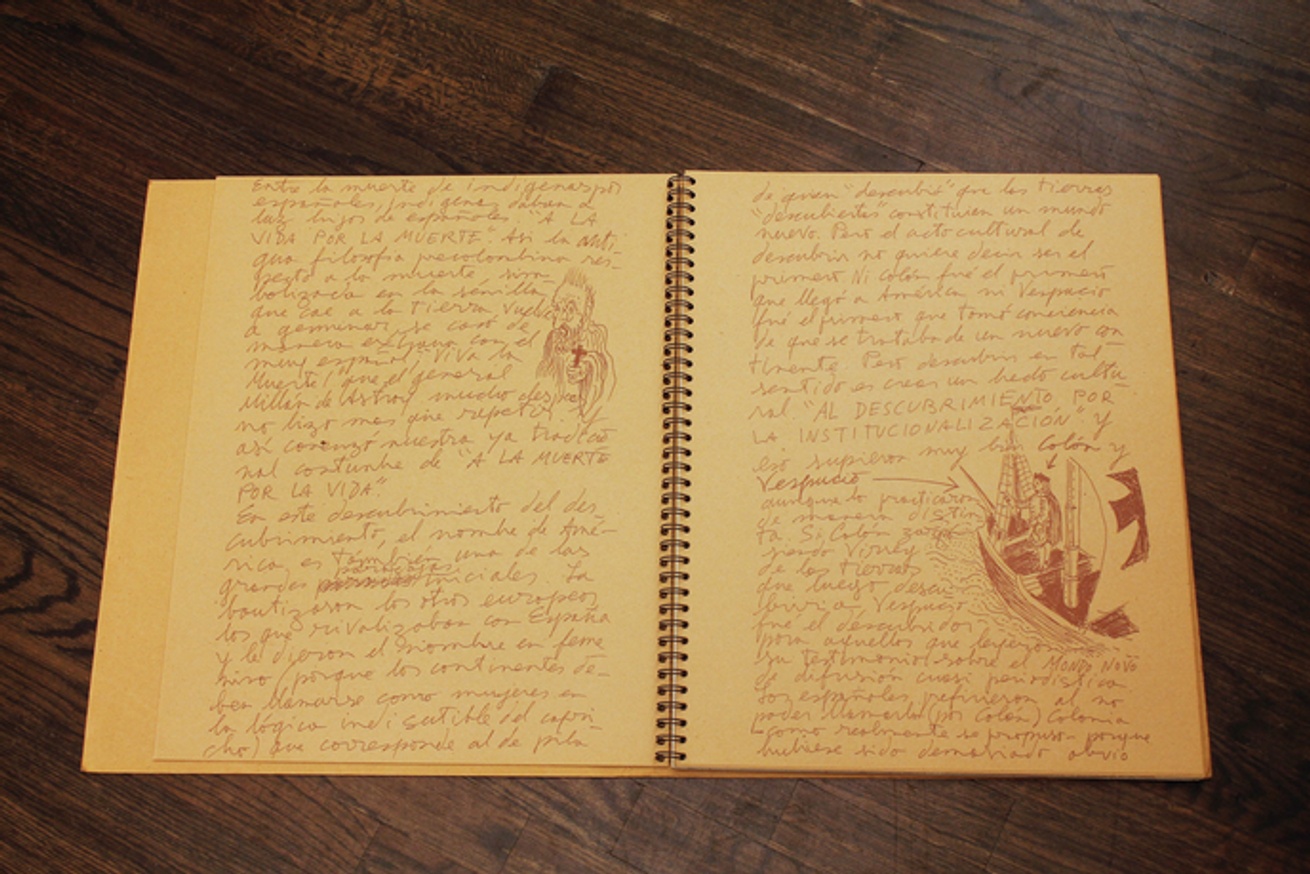 Entre la muerte de indígenas por
españoles, indígenas daban a
luz hijos de españoles. "A LA
VIDA POR LA MUERTE". Así la anti-
gua filosofía precolombina res-
pecto a la muerte sim-
bolizada en la semilla
que cae a la tierra
a germinar, se casó de
manera extraña con el
muy español, "Viva la
Muerte!" que el general
Millán de Astray mucho después
no hizo mas que repetir. Y
así comenzó nuestra ya tradicio
nal costumbre de "A LA MUERTE
POR LA VIDA".
En este descubrimiento del des-
cubrimiento, el nombre de Amé-
rica es también una de las
grandes iniciales. La
bautizaron los otros europeos
los que rivalizaban con España
y le dieron el nombre en feme
nino (porque los continentes de-
ben llamarse como mujeres en
la lógica indiscutible del capri-
cho) que corresponde al de pila
de quien "descubrió" que las tierras
"descubiertas" constituían un mundo
nuevo. Pero el acto cultural de
descubrir no quiere decir ser el
primero. Ni Colón fué el primero
que llegó a América, ni Vespucio
fué el primero que tomó conciencia
de que se trataba de un nuevo con
tinente. Pero descubrir en tal
sentido es crear un hecho cultu-
ral "AL DESCUBRIMIENTO POR
LA INSTITUCIONALIZACIÓN" y
eso supieron muy bien Colón y
Vespucio
aunque lo practicaron
de manera distin
ta. Si Colón
siendo Virrey
de las tierras
que luego descu-
briría, Vespucio
fué el descubridor
para aquellos que leyeron
su testimonio sobre el MONDO NOVO
de difusión cuasi periodística
Los españoles prefirieron al no
poder llamarla (por Colón) Colonia
-como realmente se propuso- porque
hubiese sido demasiado obvio